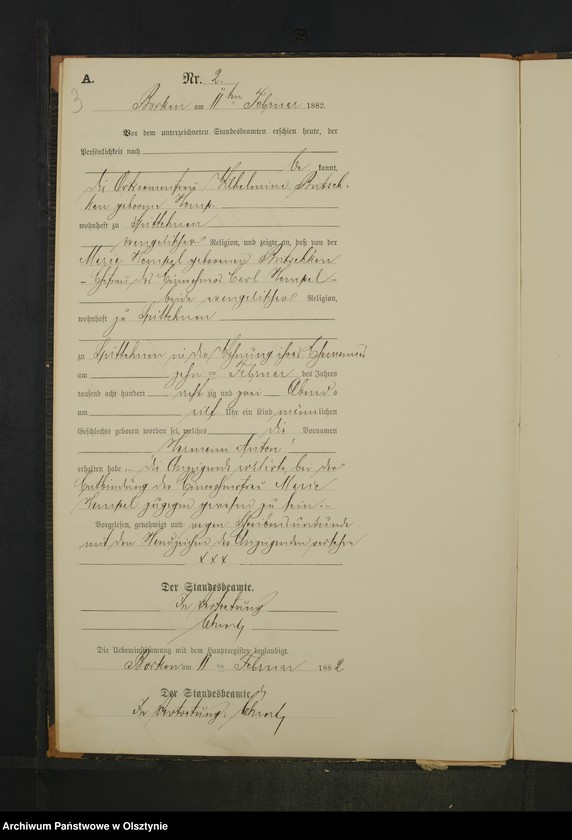 A. Nr. 2.
3
Borken am 11ten Februar 1882.
Vor dem unterzeichneten Standesbeamten erschien heute, der
Persönlichkeit nach
be kannt,
die Wilhelmine
geborene
wohnhaft zu Spittehnen
evangelischer Religion, und zeigte an, daß von der
Marie Hempel geborenen
Ehefrau des Einwohners Carl Hempel
beide evangelischer Religion,
wohnhaft zu Spittehnen
zu Spittehnen in der Wohnung ihres Ehemannes
am zehn ten Februar des Jahres
tausend acht hundert acht zig und zwei Abends
um eilf Uhr ein Kind männlichen
Geschlechts geboren worden sei, welches die Vornamen
Hermann Anton
erhalten habe. Die Anzeigende erklärte bei der
Entbindung der Einwohnerfrau Marie
Hempel zugegen gewesen zu sein.
Vorgelesen, genehmigt und wegen Schreibensunkunde
mit dem Handzeichen der Anzeigenden versehen
+++
Der Standesbeamte.
In Vertretung
Die Uebereinstimmung mit dem Hauptregister beglaubigt.
Borken am 11 ten Februar 1882
Der Standesbeamte
In Vertretung.
Archiwum Państwowe w Olsztynie